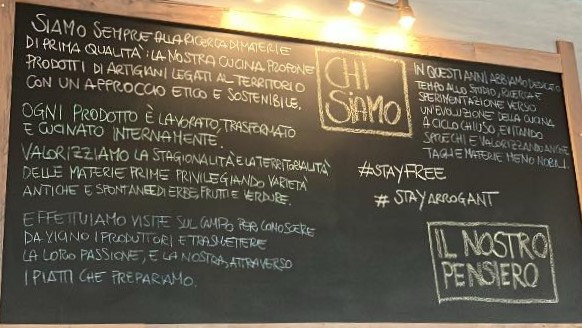 SIAMO SEMPRE ALLA RICERCA DI MATERIE
DI PRIMA QUALITÀ: LA NOSTRA CUCINA PROPONE
PRODOTTI DI ARTIGIANI LEGATI AL TERRITORIO
CON UN APPROCCIO ETICO E SOSTENIBILE.
OGNI PRODOTTO È LAVORATO, TRASFORMATO
E CUCINATO INTERNAMENTE.
VALORIZZIAMO LA STAGIONALITÀ E LA TERRITORIALITÀ
DELLE MATERIE PRIME PRIVILEGIANDO VARIETÀ
ANTICHE E SPONTANEE DI ERBE, FRUTTI E VERDURE.
EFFETTUIAMO VISITE SUL CAMPO PER CONOSCERE
DA VICINO I PRODUTTORI E TRASMETTERE
LA LORO PASSIONE, E LA NOSTRA, ATTRAVERSO
I PIATTI CHE PREPARIAMO.
CHI
SIAMO
IN QUESTI ANNI ABBIAMO DEDICATO
TEMPO ALLO STUDIO, RICERCA E
SPERIMENTAZIONE VERSO
UN'EVOLUZIONE DELLA CUCINA
A CICLO CHIUSO, EVITANDO
SPRECHI E VALORIZZANDO ANCHE
TAGLI E MATERIE MENO NOBILI.
#STAYFREE
# STAYARROGANT
IL NOSTRO
PENSIERO